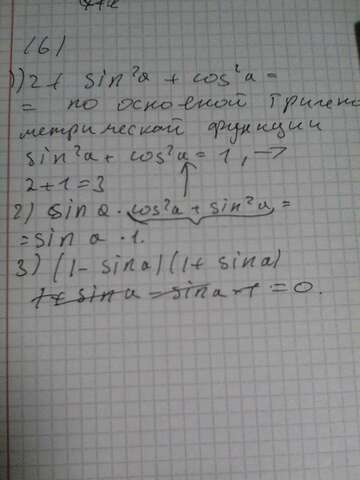 (6)
1) 2 + sin²a + cos²a =
= по основной Тригено
метрической функции
sin²a + cos²a = 1, →
2+1=3
2) sin a · cos²a + sin²a =
= sin a · 1.
3) (1 - sin a) (1 + sin a)
1 + sin a - sin a × 1 = 0.